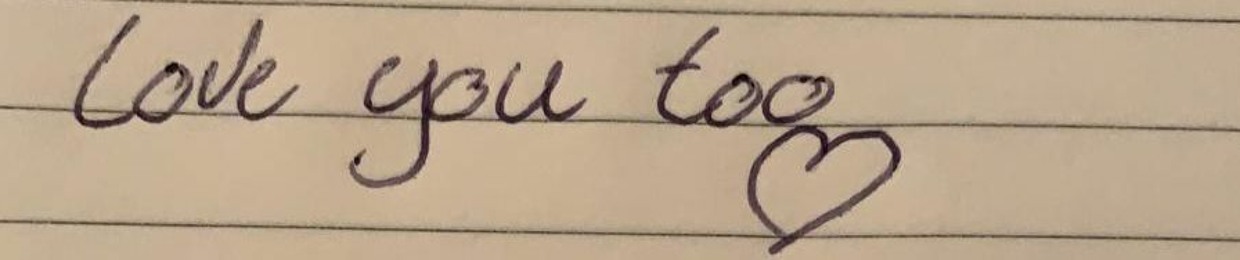 Love you too
♡